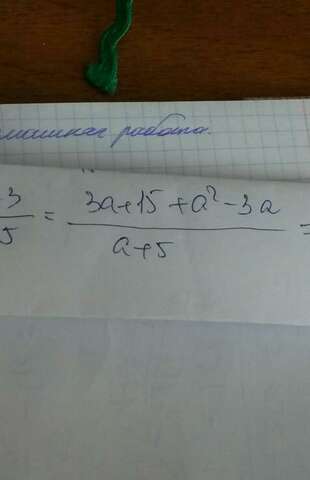 машняя работа.
-3/5 = (3a+15+a²-3a)/(a+5) =